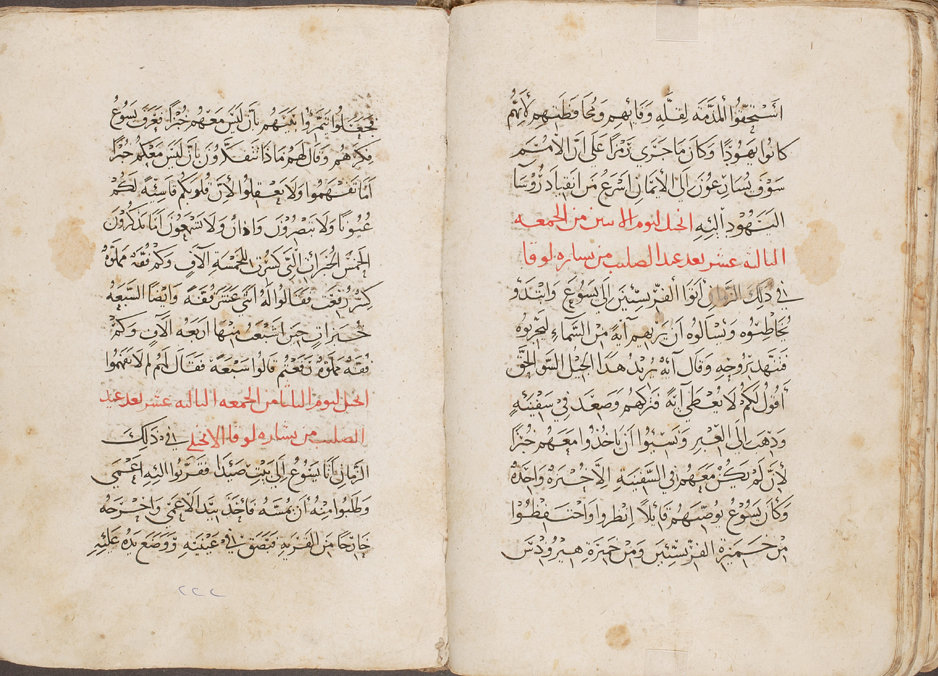 انستحقوا المذمّة لقلّه وفائهم ومحافظتهم لأنهم
كانوا يهودًا وكان ما جرى رمزًا على ان الامم
سوف يسارعون الى الايمان اسرع من انقياد روسا
اليهود اليه انجيل ليوم الاثنين من الجمعه
الثالثه عشر بعد عيد الصليب من بشاره لوقا
في ذلك الزمان أتوا الفريسيّين الى يسوع وابتدو
يخاطبوه ويسالوه ان يريهم آيةً من السّماء ليجربوه
فتنهد بروحه وقال آيةً يريد هذا الجيل السو الحق
أقول لكم لا يُعطى آيةً فتركهم وصعد في سفينةٍ
وذهب الى العبر ونسيوا ان ياخذوا معهم خبزًا
لأن لم يكن معهم في السّفينة الّا خبزة واحدة
وكان يسوع يوصّيهم قايلًا انظروا واحتفظوا
من خميرة الفريسيّين ومن خميرة هيرودس
فجعلوا يتمروا بينهم بأن ليس معهم خبزًا فعرف يسوع
فكرهم وقال لهم ماذا تتفكّرون بان ليس معكم خبزًا
أما تفهموا ولا تعقلوا الأن قلوبكم قاسيةً لكم
عيونًا ولا تبصرون واذانٌ ولا تسمعون اما تذكرون
الخمس الخبزات الّتي كسرت للخمسة الآف وكم قفة مملوة
كسر رفعتم فقالوا له اثنى عشر قفه وايضا السّبعه
خبزاتٍ حين اشبعت منها اربعه الآف وكم
قفه مملوة رفعتم قالوا سبعه فقال لهم لم لا تفهموا
انجيل ليوم الثلثا من الجمعه الثالثه عشر بعد عيد
الصليب من بشاره لوقا الانجيلي في ذلك
الزمان اتا يسوع إلى بيت صيدا فقربوا اليه اعمى
وطلبوا منه ان يمسه فاخذ بيد الاعمى واخرجه
خارجًا من القريه فبصق في عينيه ووضع يده عليه
٢٢٢